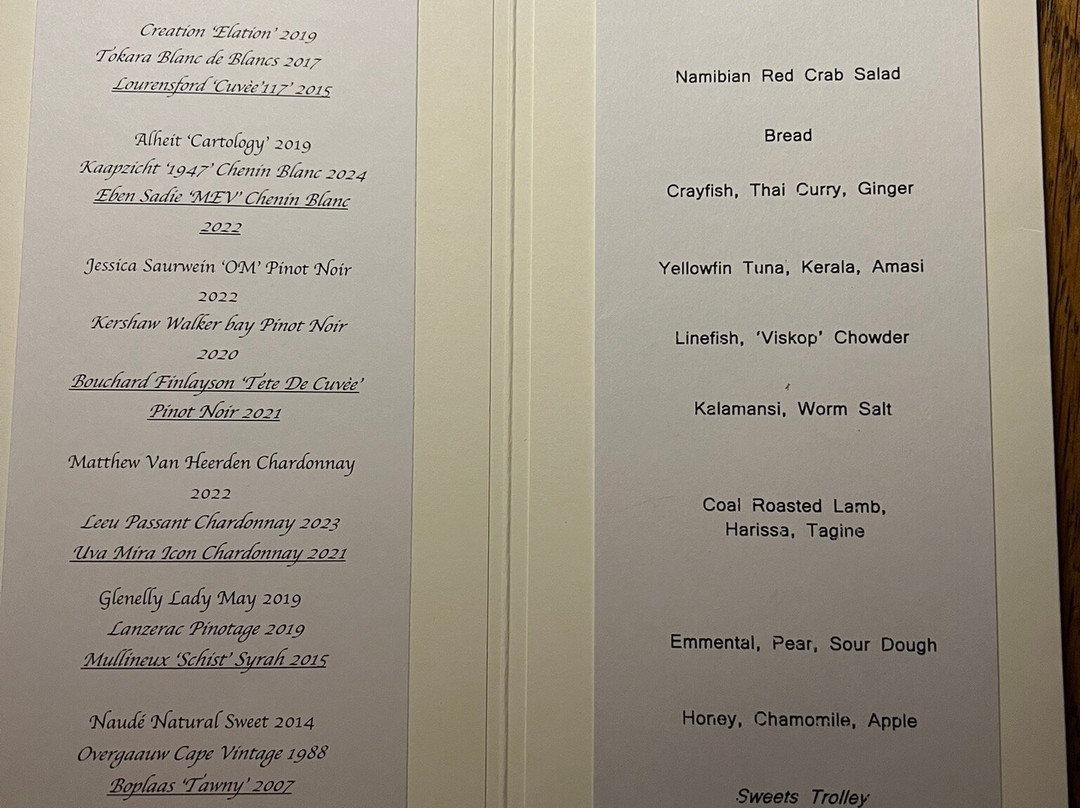 Creation 'Elation' 2019
Tokara Blanc de Blancs 2017
Lourensford 'Cuvèe'117' 2015
Alheit 'Cartology' 2019
Kaapzicht '1947' Chenin Blanc 2024
Eben Sadie 'MEV' Chenin Blanc
2022
Jessica Saurwein 'OM' Pinot Noir
2022
Kershaw Walker bay Pinot Noir
2020
Bouchard Finlayson 'Tete De Cuvèe'
Pinot Noir 2021
Matthew Van Heerden Chardonnay
2022
Leeu Passant Chardonnay 2023
Uva Mira Icon Chardonnay 2021
Glenelly Lady May 2019
Lanzerac Pinotage 2019
Mullineux 'Schist' Syrah 2015
Naudé Natural Sweet 2014
Overgaauw Cape Vintage 1988
Boplaas 'Tawny' 2007
Namibian Red Crab Salad
Bread
Crayfish, Thai Curry, Ginger
Yellowfin Tuna, Kerala, Amasi
Linefish, 'Viskop' Chowder
Kalamansi, Worm Salt
Coal Roasted Lamb,
Harissa, Tagine
Emmental, Pear, Sour Dough
Honey, Chamomile, Apple
Sweets Trolley